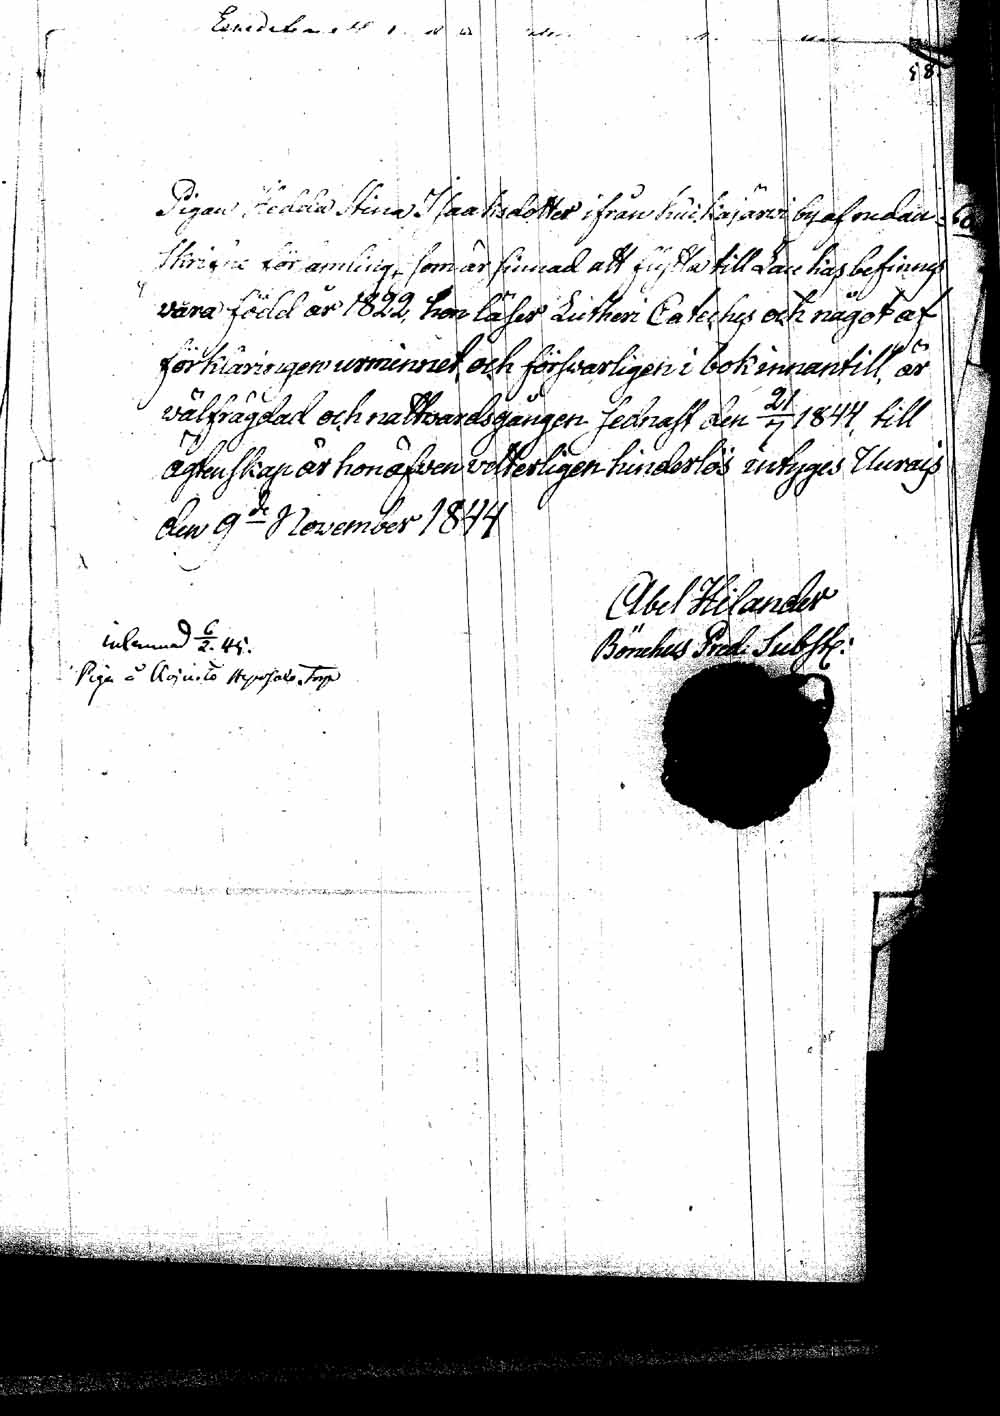 58.
Pigan Hedda Stina Isaaksdotter ifrån Kuikajärvi by af nedan
skrifne församling, som är sinnad att flytta till Laukas befinnes
vara född år 1822, hon läser Lutheri Cateches och något af
förklaringen urminnet, och försvarligen i bok innantill, är
välfrägdad och nattvardsgången sednast den 21/7 1844, till
ägtenskap är hon äfven vetterligen hinderlös intyges Uurais
den 9de November 1844
Abel Hilander
Pred. Subst:
inlemnad 6/2. 45.
Piga å Torp